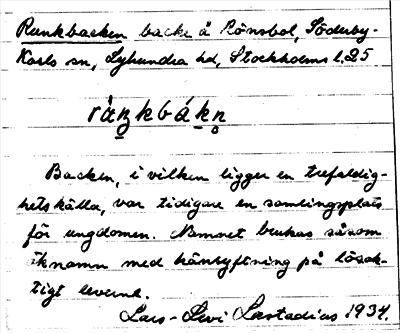 Runkbacken backe å Rönsbol, Söderby-
Karls sn, Lyhundra hd, Stockholms l, 25
ràn̠kbák̠n̥
Backen, i vilken ligger en trefaldig-
hetskälla, var tidigare en samlingsplats
för ungdomen. Namnet brukas såsom
öknamn med hänsyftning på lösak-
tigt leverne.
Lars-Levi Læstadius 1934.